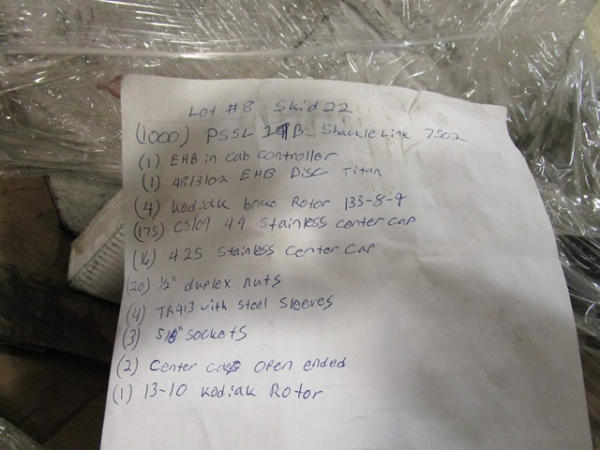 Lot #8 Skid 22
(1000) PSSL B Shackle Link 7502
(1) EHB in cab controller
(1) 4813102 EHB Disc Titan
(4) Kodiak brake Rotor 133-8-9
(175) CS109 4.9 Stainless center cap
(16) 4.25 Stainless Center Cap
(20) 1/2" duplex nuts
(4) TR413 with Steel Sleeves
(3) 5/8" sockets
(2) Center caps Open ended
(1) 13-10 Kodiak Rotor